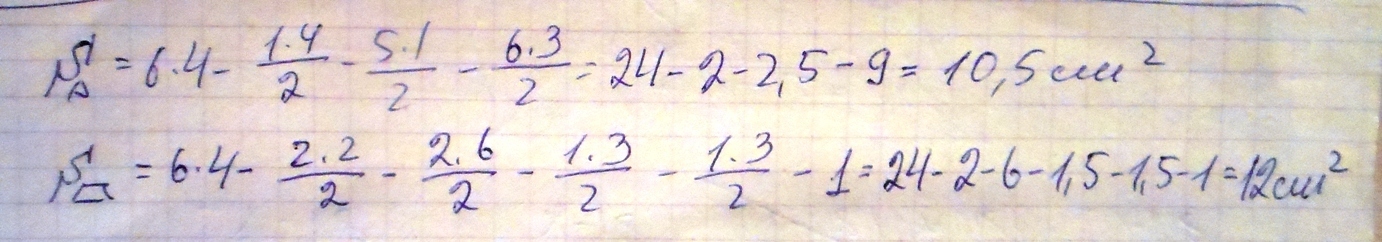 S△ = 6·4 - 1·4/2 - 5·1/2 - 6·3/2 = 24 - 2 - 2,5 - 9 = 10,5 см²
S▱ = 6·4 - 2·2/2 - 2·6/2 - 1·3/2 - 1·3/2 - 1 = 24 - 2 - 6 - 1,5 - 1,5 - 1 = 12 см²